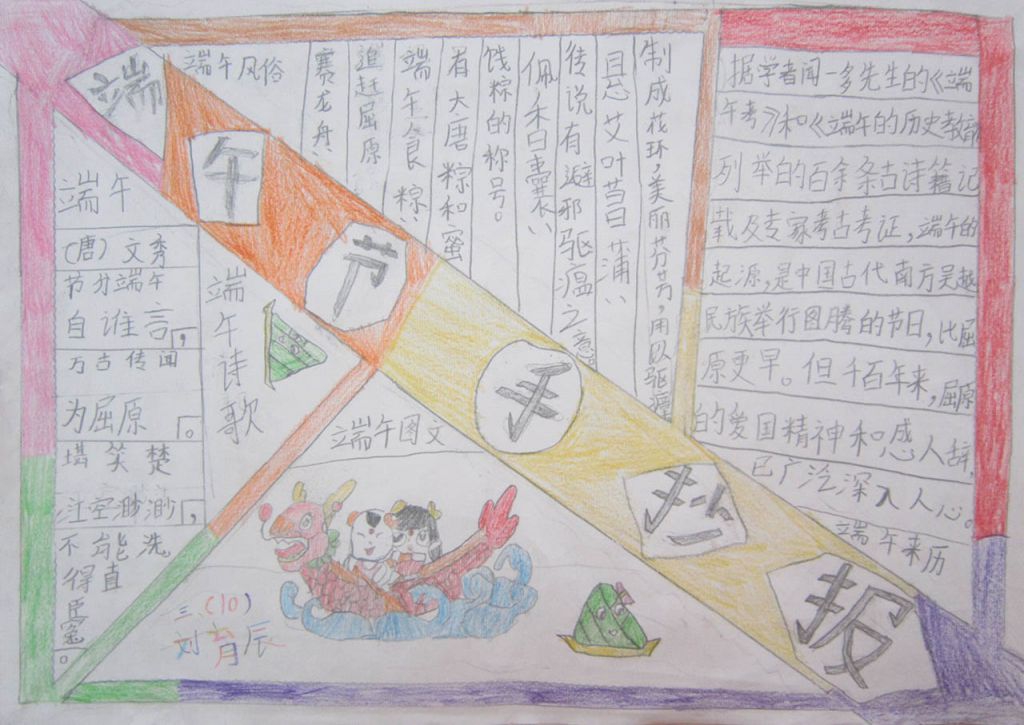 端午节手抄报
端午风俗
赛龙舟、
追赶屈原
端午食粽、
有大唐粽和蜜
饯粽的称号。
佩香囊、
传说有避邪驱瘟之意
艾叶菖蒲、
制成花环,美丽芬芳,用以驱瘴
端午
(唐)文秀
节分端午
自谁言,
万古传闻
为屈原。
堪笑楚
江空渺渺,
不能洗
得直
臣冤。
端午诗歌
端午图文
三(10)
刘育辰
据学者闻一多先生的《端
午考》和《端午的历史教
列举的百余条古诗籍记
载及专家考古考证,端午的
起源,是中国古代南方吴越
民族举行图腾的节日,比屈
原更早。但千百年来,屈原
的爱国精神和感人辞,
已广泛深入人心。
端午来历